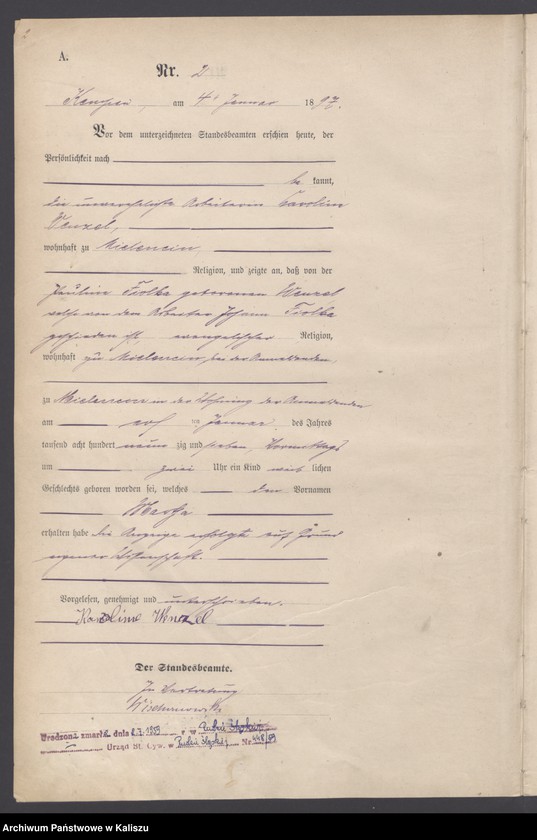 A.
Nr. 2
Kempen, am 4t Januar 1897.
Vor dem unterzeichneten Standesbeamten erschien heute, der
Persönlichkeit nach
be kannt,
die unverehelichte Arbeiterin Caroline
Wenzel,
wohnhaft zu Mielencin
Religion, und zeigte an, daß von der
Pauline Fiolka geborenen Wenzel
welche von dem Arbeiter Johann Fiolka
geschieden ist, evangelischer Religion,
wohnhaft zu Mielencin, bei der Anmeldenden,
zu Mielencin in der Wohnung der Anmeldenden
am Januar des Jahres
tausend acht hundert neun zig und sieben, Vormittags
um zwei Uhr ein Kind weib lichen
Geschlechts geboren worden sei, welches den Vornamen
erhalten habe die Anzeige erfolgte auf Grund
eigener Wissenschaft.
Vorgelesen, genehmigt und unterschrieben.
Karoline Wenzel
Der Standesbeamte.
In Vertretung
Urodzona zmarła dnia 1959 r w
Urząd St. Cyw. w Nr
Archiwum Państwowe w Kaliszu